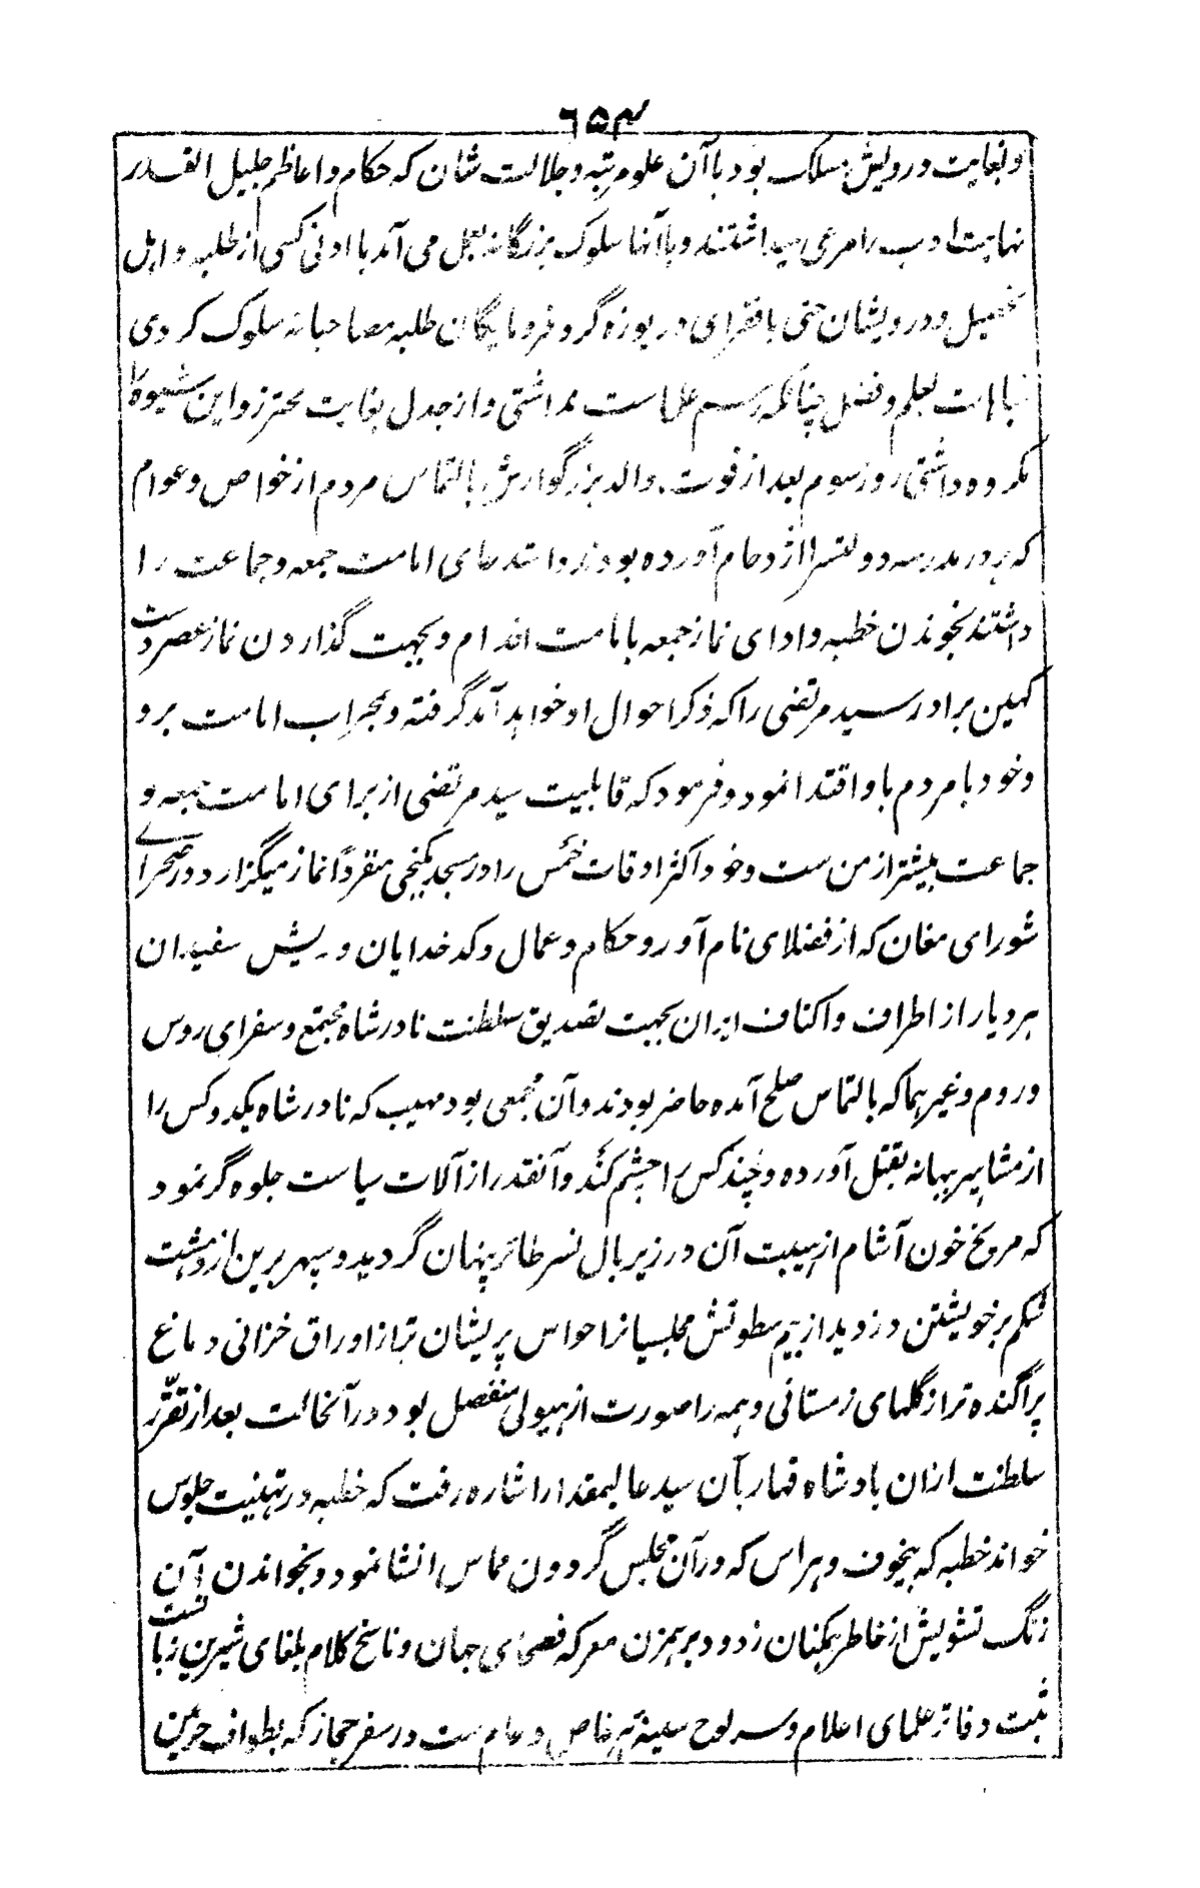 ۶۵۴
و بغایت درویش مسلک بود با آن علو مرتبه و جلالت شان که حکام و اعاظم جلیل القدر
نهایت ادب را مرعی میداشتند و با آنها سلوک بزرگانه بعمل می آمد با ادنی کسی از طلبه و اهل
تحصیل و درویشان حتی با فقرای دریوزه گر و فرومایگان طلبه مصاحبانه سلوک کردی
مباهات بعلم و فضل چنانکه رسم علماست نداشتی و از جدل بغایت محترز و این شیوه را
مکروه داشتی روز سوم بعد از فوت والد بزرگوارش بالتماس مردم از خواص و عوام
که بدر مدرسه و دولتسرا ازدحام آورده بودند و استدعای امامت جمعه و جماعت را
داشتند بخوندن خطبه و ادای نماز جمعه بامامت اقدام و بجهت گذاردن نماز عصر دست
کهین برادر سید مرتضی را که ذکر احوال او خواهد آمد گرفته و بمحراب امامت برد
و خود با مردم باو اقتدا نمود و فرمود که قابلیت سید مرتضی از برای امامت جمعه و
جماعت بیشتر از من ست و خود اکثر اوقات خمس را در مسجد بکنجی منفرداً نماز میگزارد در صحرای
شورای مغان که از فضلای نام آور و حکام و عمال و کدخدایان و ریش سفیدان
هر دیار از اطراف و اکناف ایران بجهت تصدیق سلطنت نادرشاه مجتمع و سفرای روس
و روم و غیرهما که بالتماس صلح آمده حاضر بودند و آن مجمعی بود مهیب که نادرشاه یکدو کس را
از مشاهیر ببهانه بقتل آورده و چند کس را چشم کنده و آنقدر از آلات سیاست جلوه گر نمود
که مریخ خون آشام از هیبت آن در زیر بال نسر طائر پنهان گردید و سپهر برین از دهشت
شکم بر خویشتن دزدید از بیم سطوتش مجلسیانرا حواس پریشان تر از اوراق خزانی و دماغ
پراگنده تر از گلهای زمستانی و همه را صورت از هیولی منفصل بود در آنحالت بعد از تقرّر
سلطنت ازان بادشاه قهار بآن سید عالیمقدار اشاره رفت که خطبه در تهنیت جلوس
خواند خطبه که بیخوف و هراس که در آن مجلس گردون مماس انشا نمود و بخواندن آن
زنگ تشویش از خاطر همکنان زدود برهمزن معرکه فصحای جهان و ناسخ کلام بلغای شیرین زبانست
ثبت دفاتر علمای اعلام و سر لوح سفینهٔ هر خاص و عام ست در سفر حجاز که بطواف حرمین